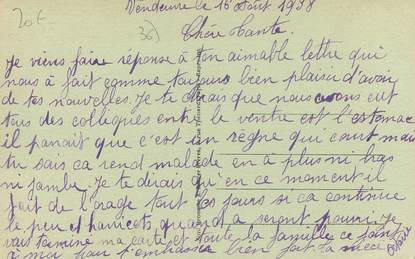 Vendeuvre le 16 Août 1938
20€
36)
Chère Tante
Je viens faire réponse à ton aimable lettre qui
nous à fait comme toujours bien plaisir d'avoir
de tes nouvelles. Je te dirais que nous avons eut
tous des colleques entre le ventre est l'estomac
il parait que c'est un règne qui court mais
tu sais ca rend malade en à plus ni bras
ni jambe. Je te dirais qu'en ce moment il
fait de l'orage tout les jours si ca continue
le peu d'haricots quand à seront pourri. Je
vais terminé ma carte et toute la famille ce joint
à moi pour t'embrasser bien fort ta nièce